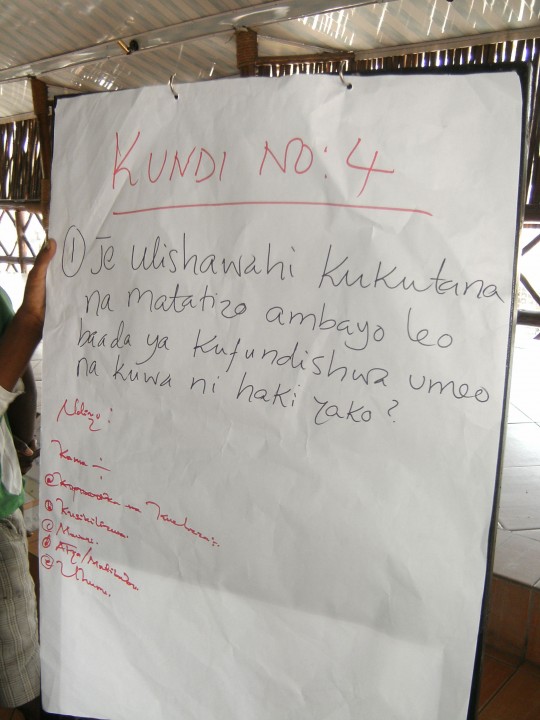 KUNDI NO: 4
① Je ulishawahi kukutana
na matatizo ambayo leo
baada ya kufundishwa umeo
na kuwa ni haki yako?
Ndiyo:
Kama:-
na
ⓑ Kusikilizwa.
ⓓ Afya/Matibabu